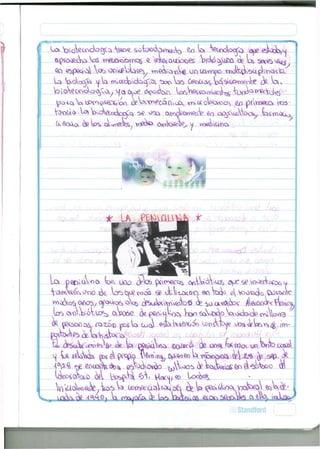 La biotecnología tiene su fundamento en la tecnología que estudia y
aprovecha los mecanismos e interacciones biológicas de los seres vivos,
en especial los unicelulares, mediante un campo multidisciplinario.
La biología y la microbiología son las ciencias básicas de la
biotecnología, ya que aportan las herramientas fundamentales
para la comprensión de la mecánica microbiana en primera ins-
tancia. La biotecnología se usa ampliamente en agricultura, farmacia,
ciencia de los alimentos, medio ambiente y medicina.
* LA PENICILINA *
La penicilina fue uno de los primeros antibióticos que se inventaron y
también uno de los que más se utilizaron en todo el mundo durante
muchos años, gracias al descubrimiento de su creador Alexander Fleming,
los antibióticos a base de penicilina han salvado la vida de millones
de personas, razón por la cual esta invención constituye una de las más im-
portantes de la historia.
El descubrimiento de la penicilina ocurrió de una forma un tanto casual
y fue relatada por el propio Fleming, quien en la mañana del 28 de sep. de
1928 se encontraba estudiando cultivos de bacterias en el sótano del
laboratorio del Hospital St. Mary, en Londres.
Inicialmente, tras la comercialización de la penicilina natural en la dé-
cada de 1940, la mayoría de las bacterias eran sensibles a ella, incluso
Standford